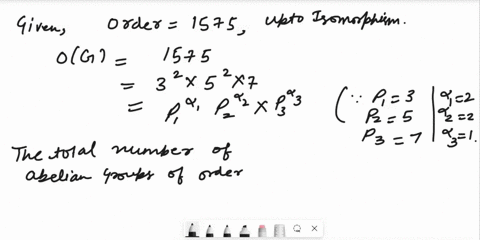 Given, Order = 1575, upto Isomorphism.
O(G) = 1575
= 3² × 5² × 7
= P₁^α₁ P₂^α₂ × P₃^α₃
(∵ P₁ = 3 | α₁ = 2
P₂ = 5 | α₂ = 2
P₃ = 7 | α₃ = 1.
The total number of
abelian groups of order